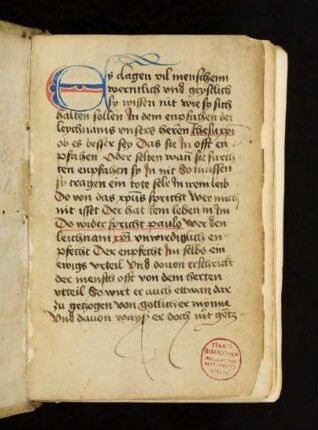 Es clagen vil menschenn
werntlich vnd geystlich
sy wissen nit wie sy sich
halten sollen In dem enpfahen der
leychnams vnsers herren Ihesu xpi
ob es besser sey Das sie in offt en
pfahen Oder selten wan sie furch
ten enpfahen sy In nit So mussen
sy tragen ein tote sele In irem leib
Do von das xpus spricht Wer mich
nit isset Der hat kein leben in Im
Do wider spricht paulo Wer den
leichnam xpi vnwirdiglich en
pfecht Der enpfecht Im selbs ein
ewigs vrteil Vnd douon erschrickt
der mensch offt von dem herten
vrteil So wirt er auch etwan dar
zu getzogen von gotlicher mynne
Vnd dauon ways er doch nit gentz
STAATS
BIBLIOTHEK
BERLIN